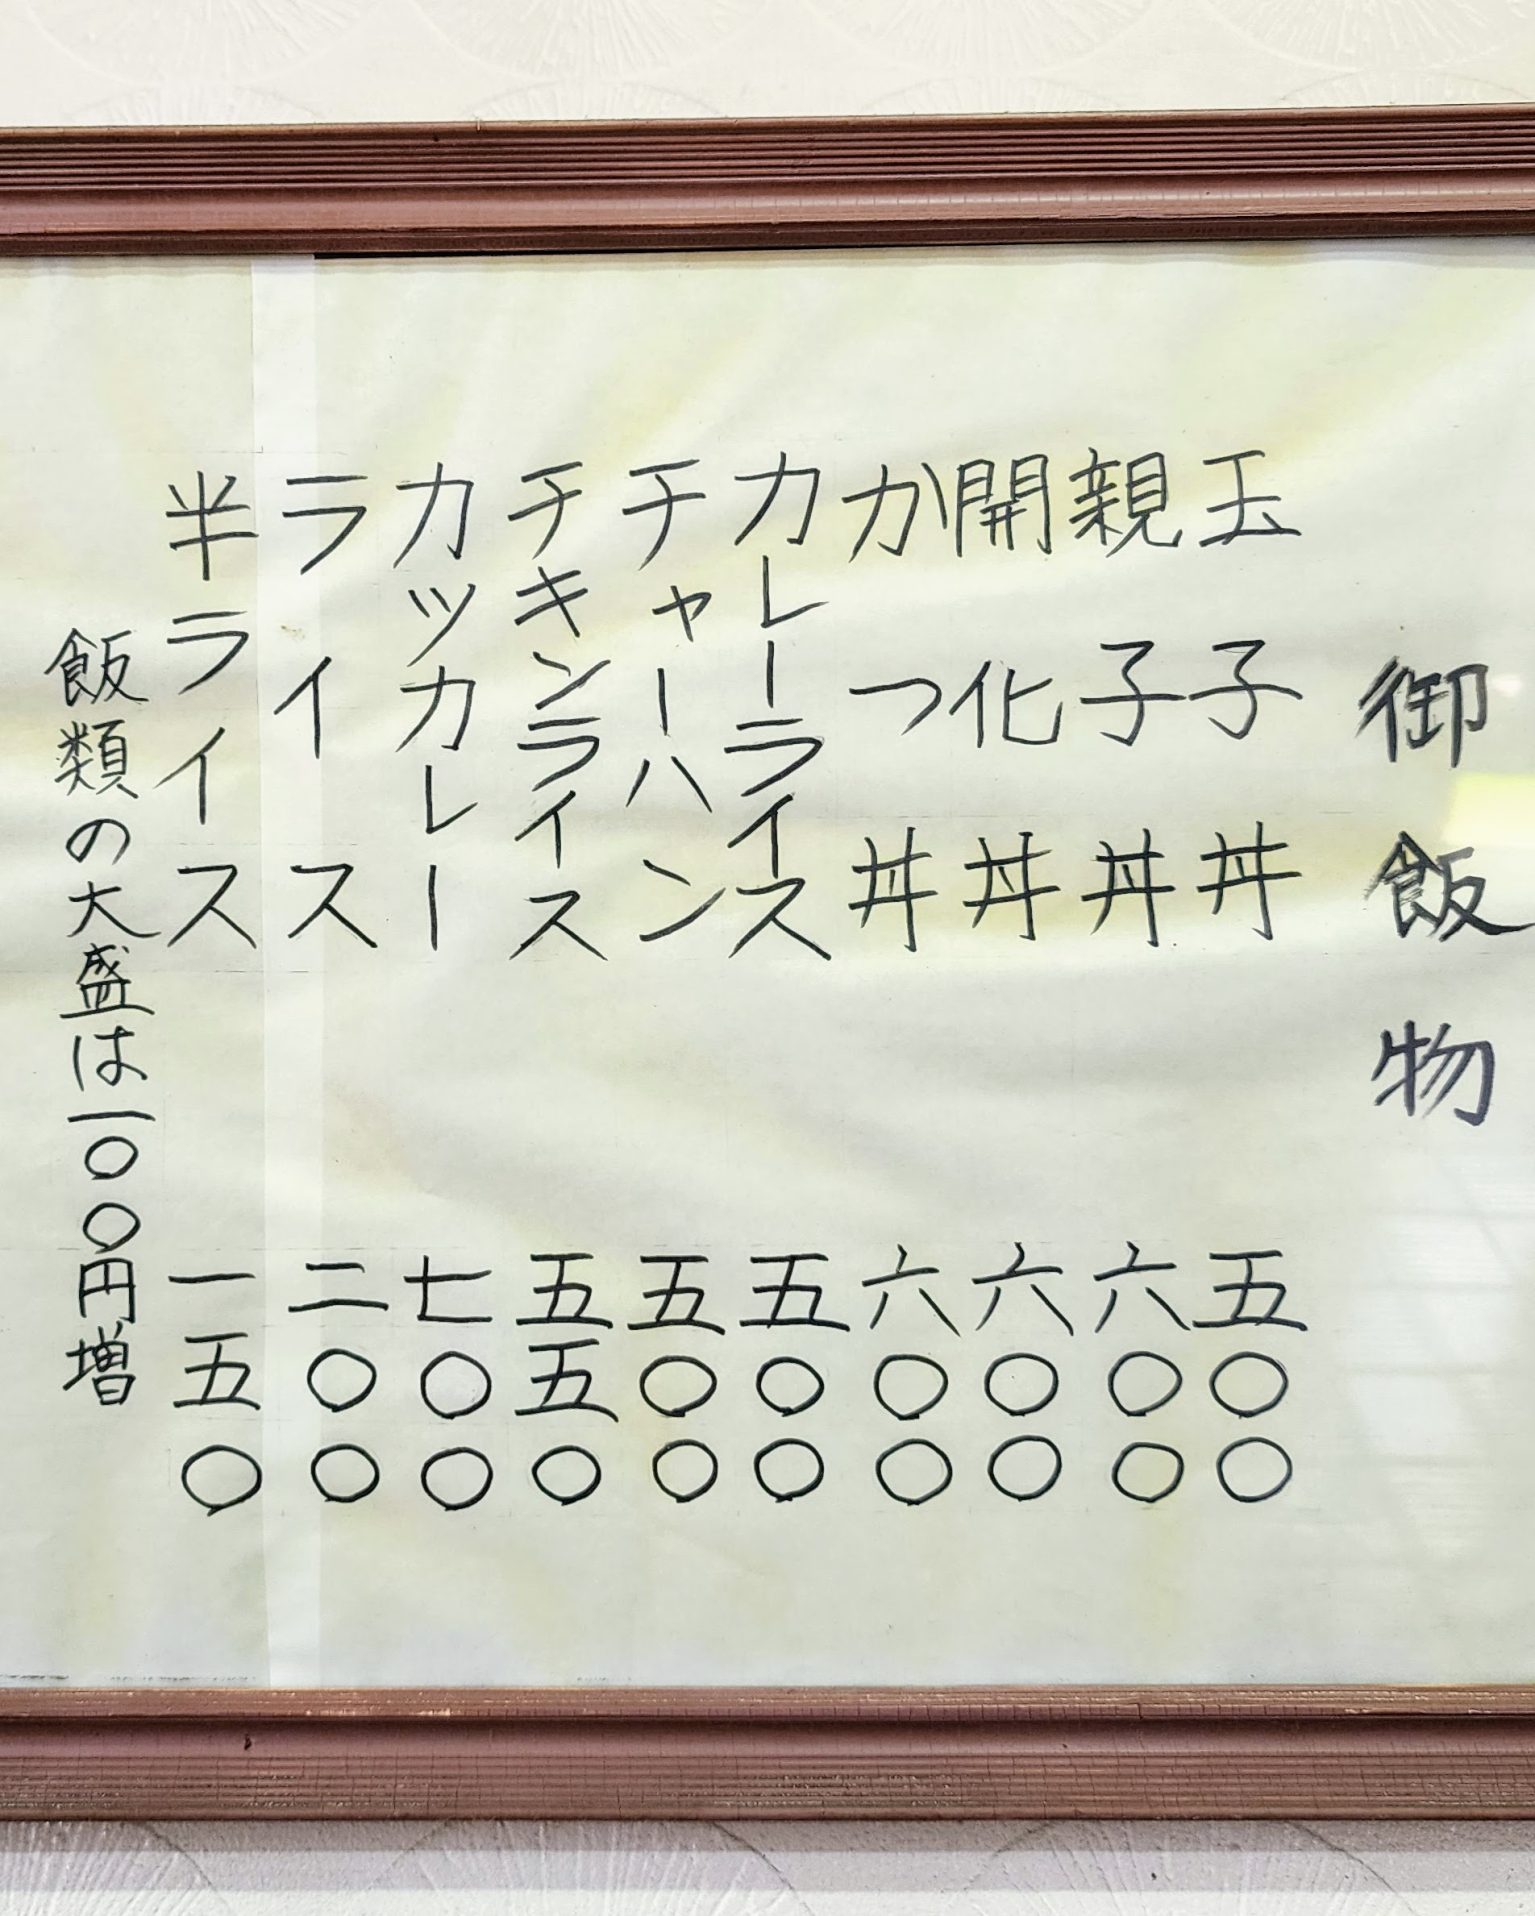 御飯物
玉子丼 五〇〇
親子丼 六〇〇
開化丼 六〇〇
かつ丼 六〇〇
カレーライス 五〇〇
チャーハン 五〇〇
チキンライス 五五〇
カツカレー 七〇〇
ライス 二〇〇
半ライス 一五〇
飯類の大盛は一〇〇円増